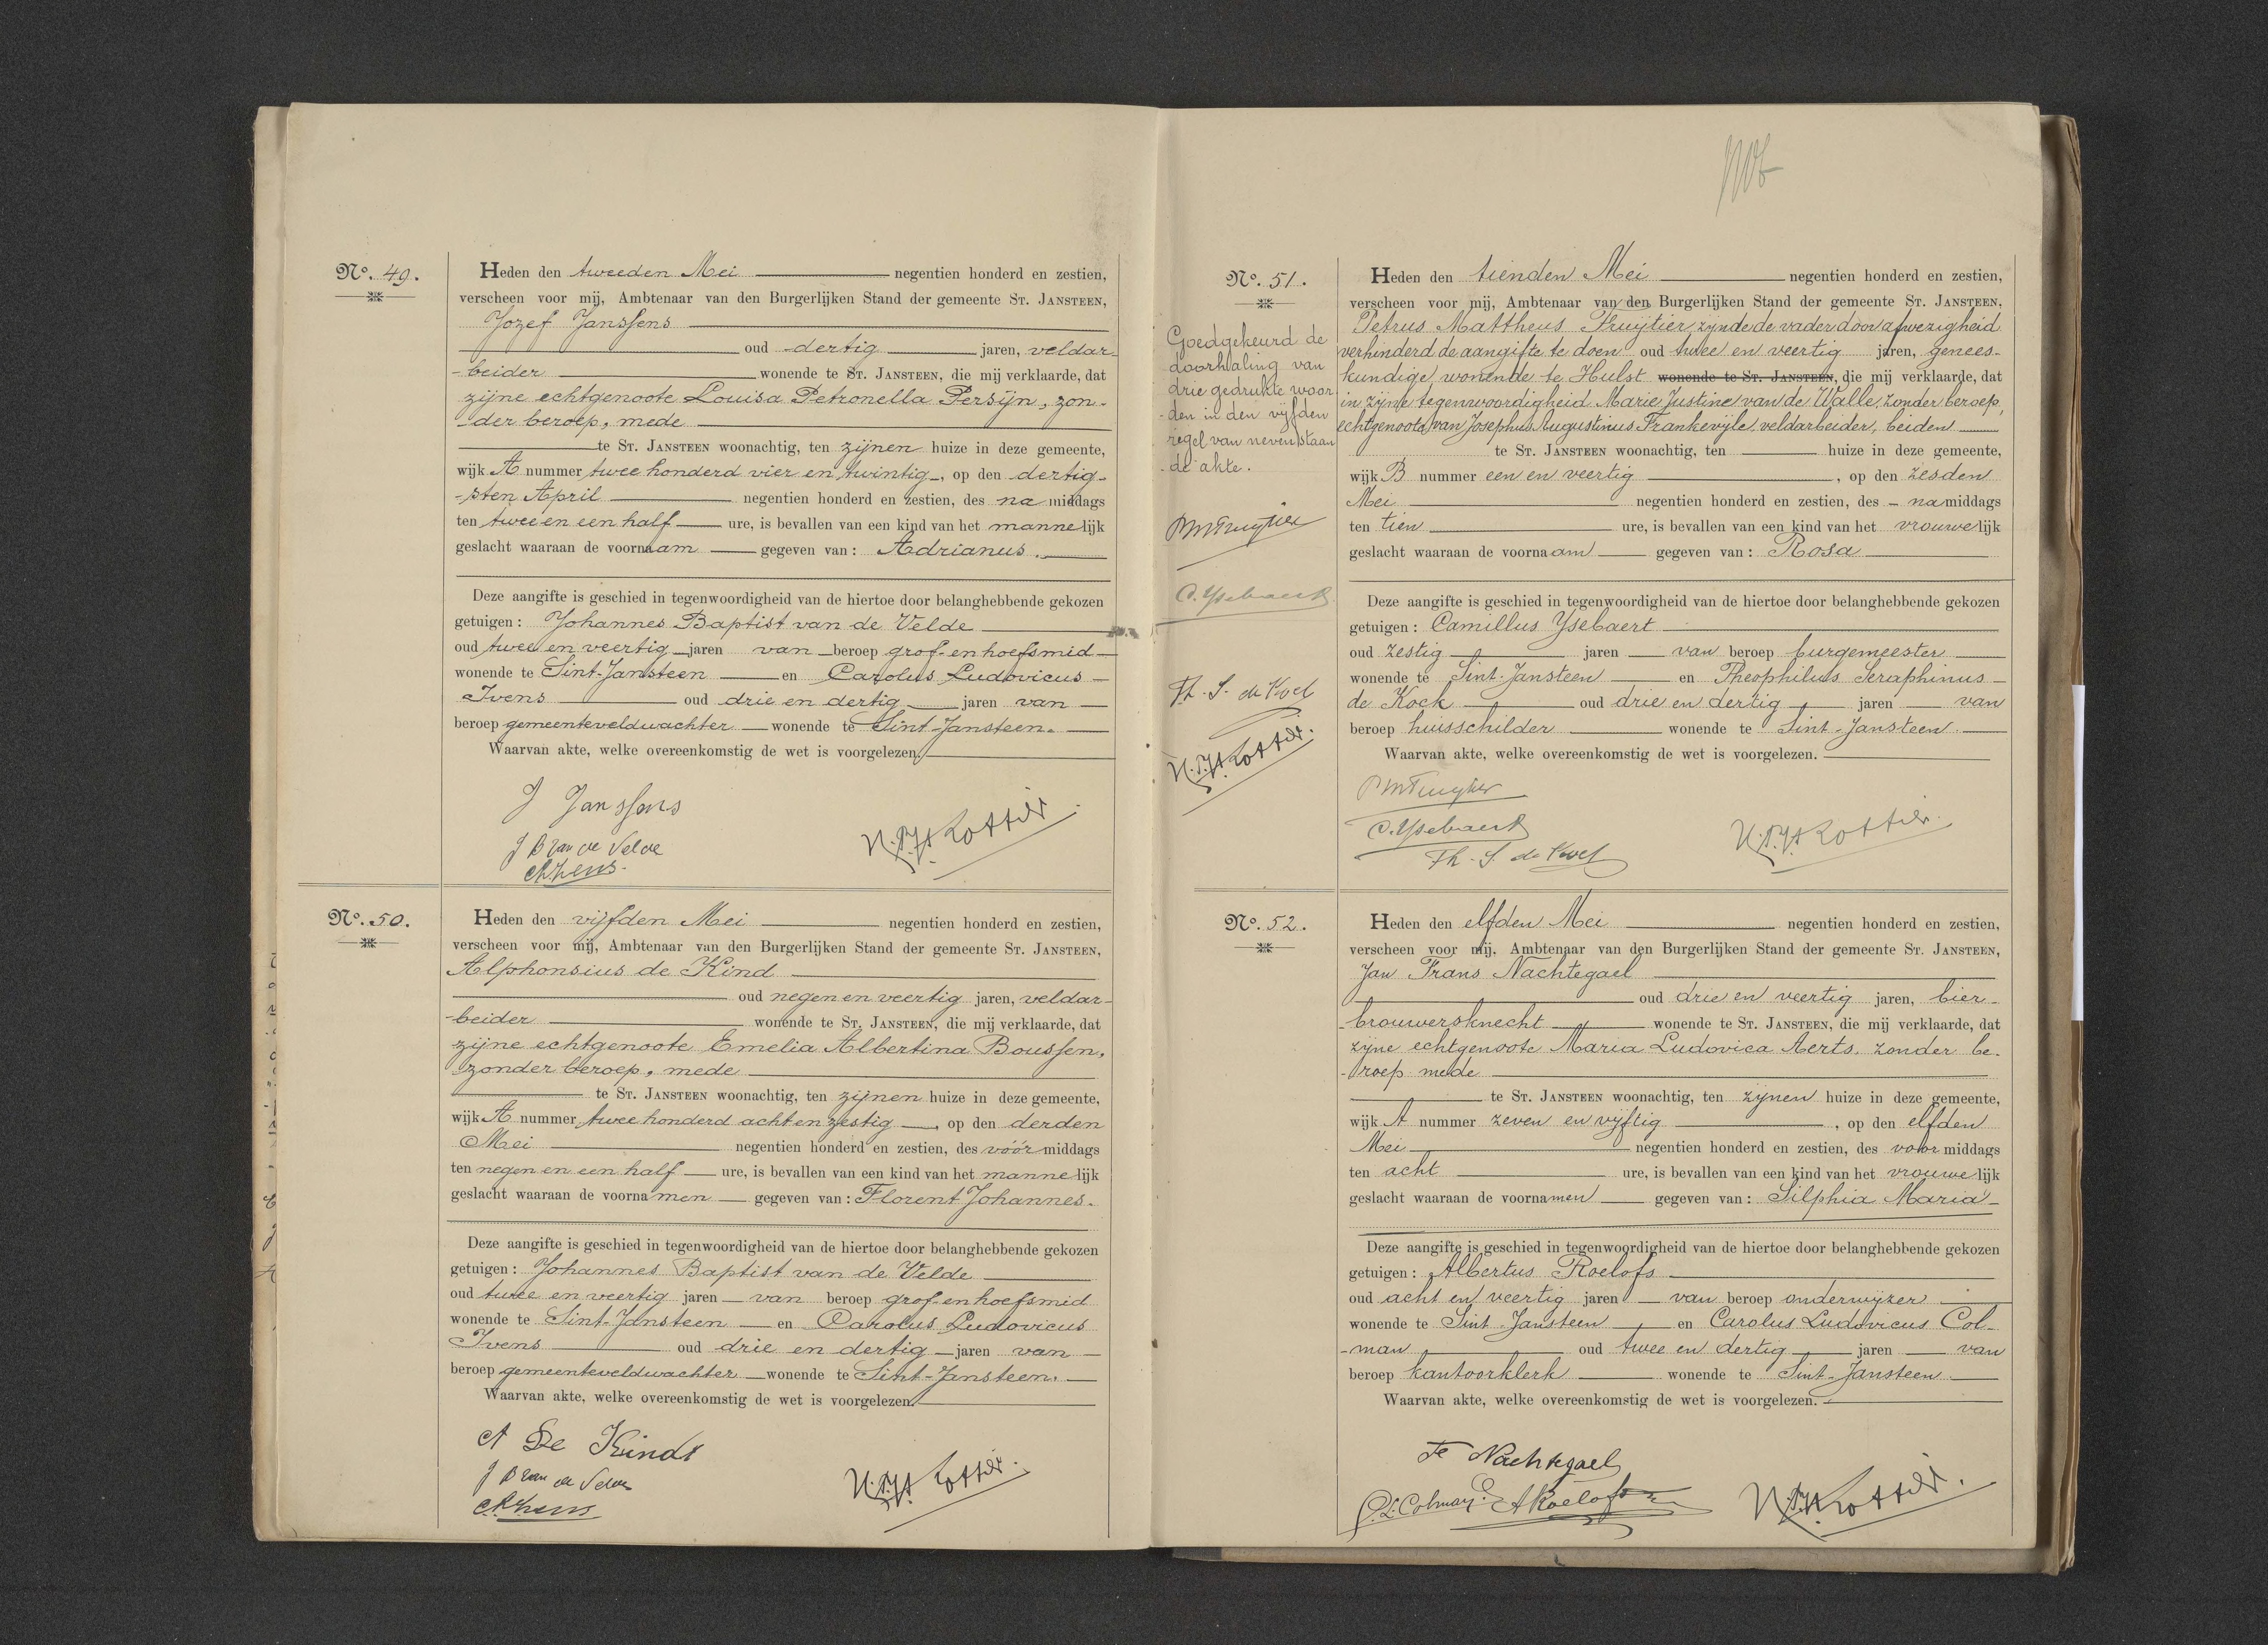 No. 49.
Heden den tweeden Mei negentien honderd en zestien,
verscheen voor mij, Ambtenaar van den Burgerlijken Stand der gemeente St. Jansteen,
Jozef Janssens
oud dertig jaren, veldar-
-beider wonende te St. Jansteen, die mij verklaarde, dat
zijne echtgenoote Louisa Petronella Persijn, zon-
-der beroep, mede
te St. Jansteen woonachtig, ten zijnen huize in deze gemeente,
wijk A nummer twee honderd vier en twintig, op den dertig-
-sten April negentien honderd en zestien, des na middags
ten twee en een half ure, is bevallen van een kind van het mannelijk
geslacht waaraan de voornaam gegeven van: Adrianus.
Deze aangifte is geschied in tegenwoordigheid van de hiertoe door belanghebbende gekozen
getuigen: Johannes Baptist van de Velde
oud twee en veertig jaren van beroep grof- en hoefsmid
wonende te Sint-Jansteen en Carolus Ludovicus
Ivens oud drie en dertig jaren van
beroep gemeenteveldwachter wonende te Sint-Jansteen.
Waarvan akte, welke overeenkomstig de wet is voorgelezen.
J Janssens
J B van de Velde
C.L. Ivens
No. 50.
Heden den vijfden Mei negentien honderd en zestien,
verscheen voor mij, Ambtenaar van den Burgerlijken Stand der gemeente St. Jansteen,
Alphonsius de Kind
oud negen en veertig jaren, veldar-
-beider wonende te St. Jansteen, die mij verklaarde, dat
zijne echtgenoote Emelia Albertina Boussen,
zonder beroep, mede
te St. Jansteen woonachtig, ten zijnen huize in deze gemeente,
wijk A nummer twee honderd acht en zestig, op den derden
Mei negentien honderd en zestien, des vóór middags
ten negen en een half ure, is bevallen van een kind van het mannelijk
geslacht waaraan de voornamen gegeven van: Florent Johannes.
Deze aangifte is geschied in tegenwoordigheid van de hiertoe door belanghebbende gekozen
getuigen: Johannes Baptist van de Velde
oud twee en veertig jaren van beroep grof- en hoefsmid
wonende te Sint-Jansteen en Carolus Ludovicus
Ivens oud drie en dertig jaren van
beroep gemeenteveldwachter wonende te Sint-Jansteen.
Waarvan akte, welke overeenkomstig de wet is voorgelezen.
A De Kindt
J B van de Velde
C.L. Ivens
No. 51.
Goedgekeurd de
doorhaling van
drie gedrukte woor
-den in den vijfden
regel van nevenstaan
-de akte.
PMTruytier
C. Ysebaert
Th. S. de Kock
Heden den tienden Mei negentien honderd en zestien,
verscheen voor mij, Ambtenaar van den Burgerlijken Stand der gemeente St. Jansteen,
Petrus Mattheus Truijtier, zijnde de vader door afwezigheid
verhinderd de aangifte te doen oud twee en veertig jaren, genees-
kundige, wonende te Hulst wonende te St. Jansteen, die mij verklaarde, dat
in zijne tegenwoordigheid Marie Justine van de Walle, zonder beroep,
echtgenoote van Josephus Augustinus Frankevijle, veldarbeider, beiden
te St. Jansteen woonachtig, ten huize in deze gemeente,
wijk B nummer een en veertig, op den zesden
Mei negentien honderd en zestien, des na middags
ten tien ure, is bevallen van een kind van het vrouwelijk
geslacht waaraan de voornaam gegeven van: Rosa
Deze aangifte is geschied in tegenwoordigheid van de hiertoe door belanghebbende gekozen
getuigen: Camillus Ysebaert
oud zestig jaren van beroep burgemeester
wonende te Sint-Jansteen en Theophilus Seraphinus
de Kock oud drie en dertig jaren van
beroep huisschilder wonende te Sint-Jansteen.
Waarvan akte, welke overeenkomstig de wet is voorgelezen.
PMTruytier
C. Ysebaert
Th. S. de Kock
No. 52.
Heden den elfden Mei negentien honderd en zestien,
verscheen voor mij, Ambtenaar van den Burgerlijken Stand der gemeente St. Jansteen,
Jan Frans Nachtegael
oud drie en veertig jaren, bier-
-brouwersknecht wonende te St. Jansteen, die mij verklaarde, dat
zijne echtgenoote Maria Ludovica Aerts, zonder be-
-roep mede
te St. Jansteen woonachtig, ten zijnen huize in deze gemeente,
wijk A nummer zeven en vijftig, op den elfden
Mei negentien honderd en zestien, des voor middags
ten acht ure, is bevallen van een kind van het vrouwelijk
geslacht waaraan de voornamen gegeven van: Silphia Maria
Deze aangifte is geschied in tegenwoordigheid van de hiertoe door belanghebbende gekozen
getuigen: Albertus Roelofs
oud acht en veertig jaren van beroep onderwijzer
wonende te Sint Jansteen en Carolus Ludovicus Col-
-man oud twee en dertig jaren van
beroep kantoorklerk wonende te Sint-Jansteen
Waarvan akte, welke overeenkomstig de wet is voorgelezen.
Nachtegael
C.L. Colman ARoelofs